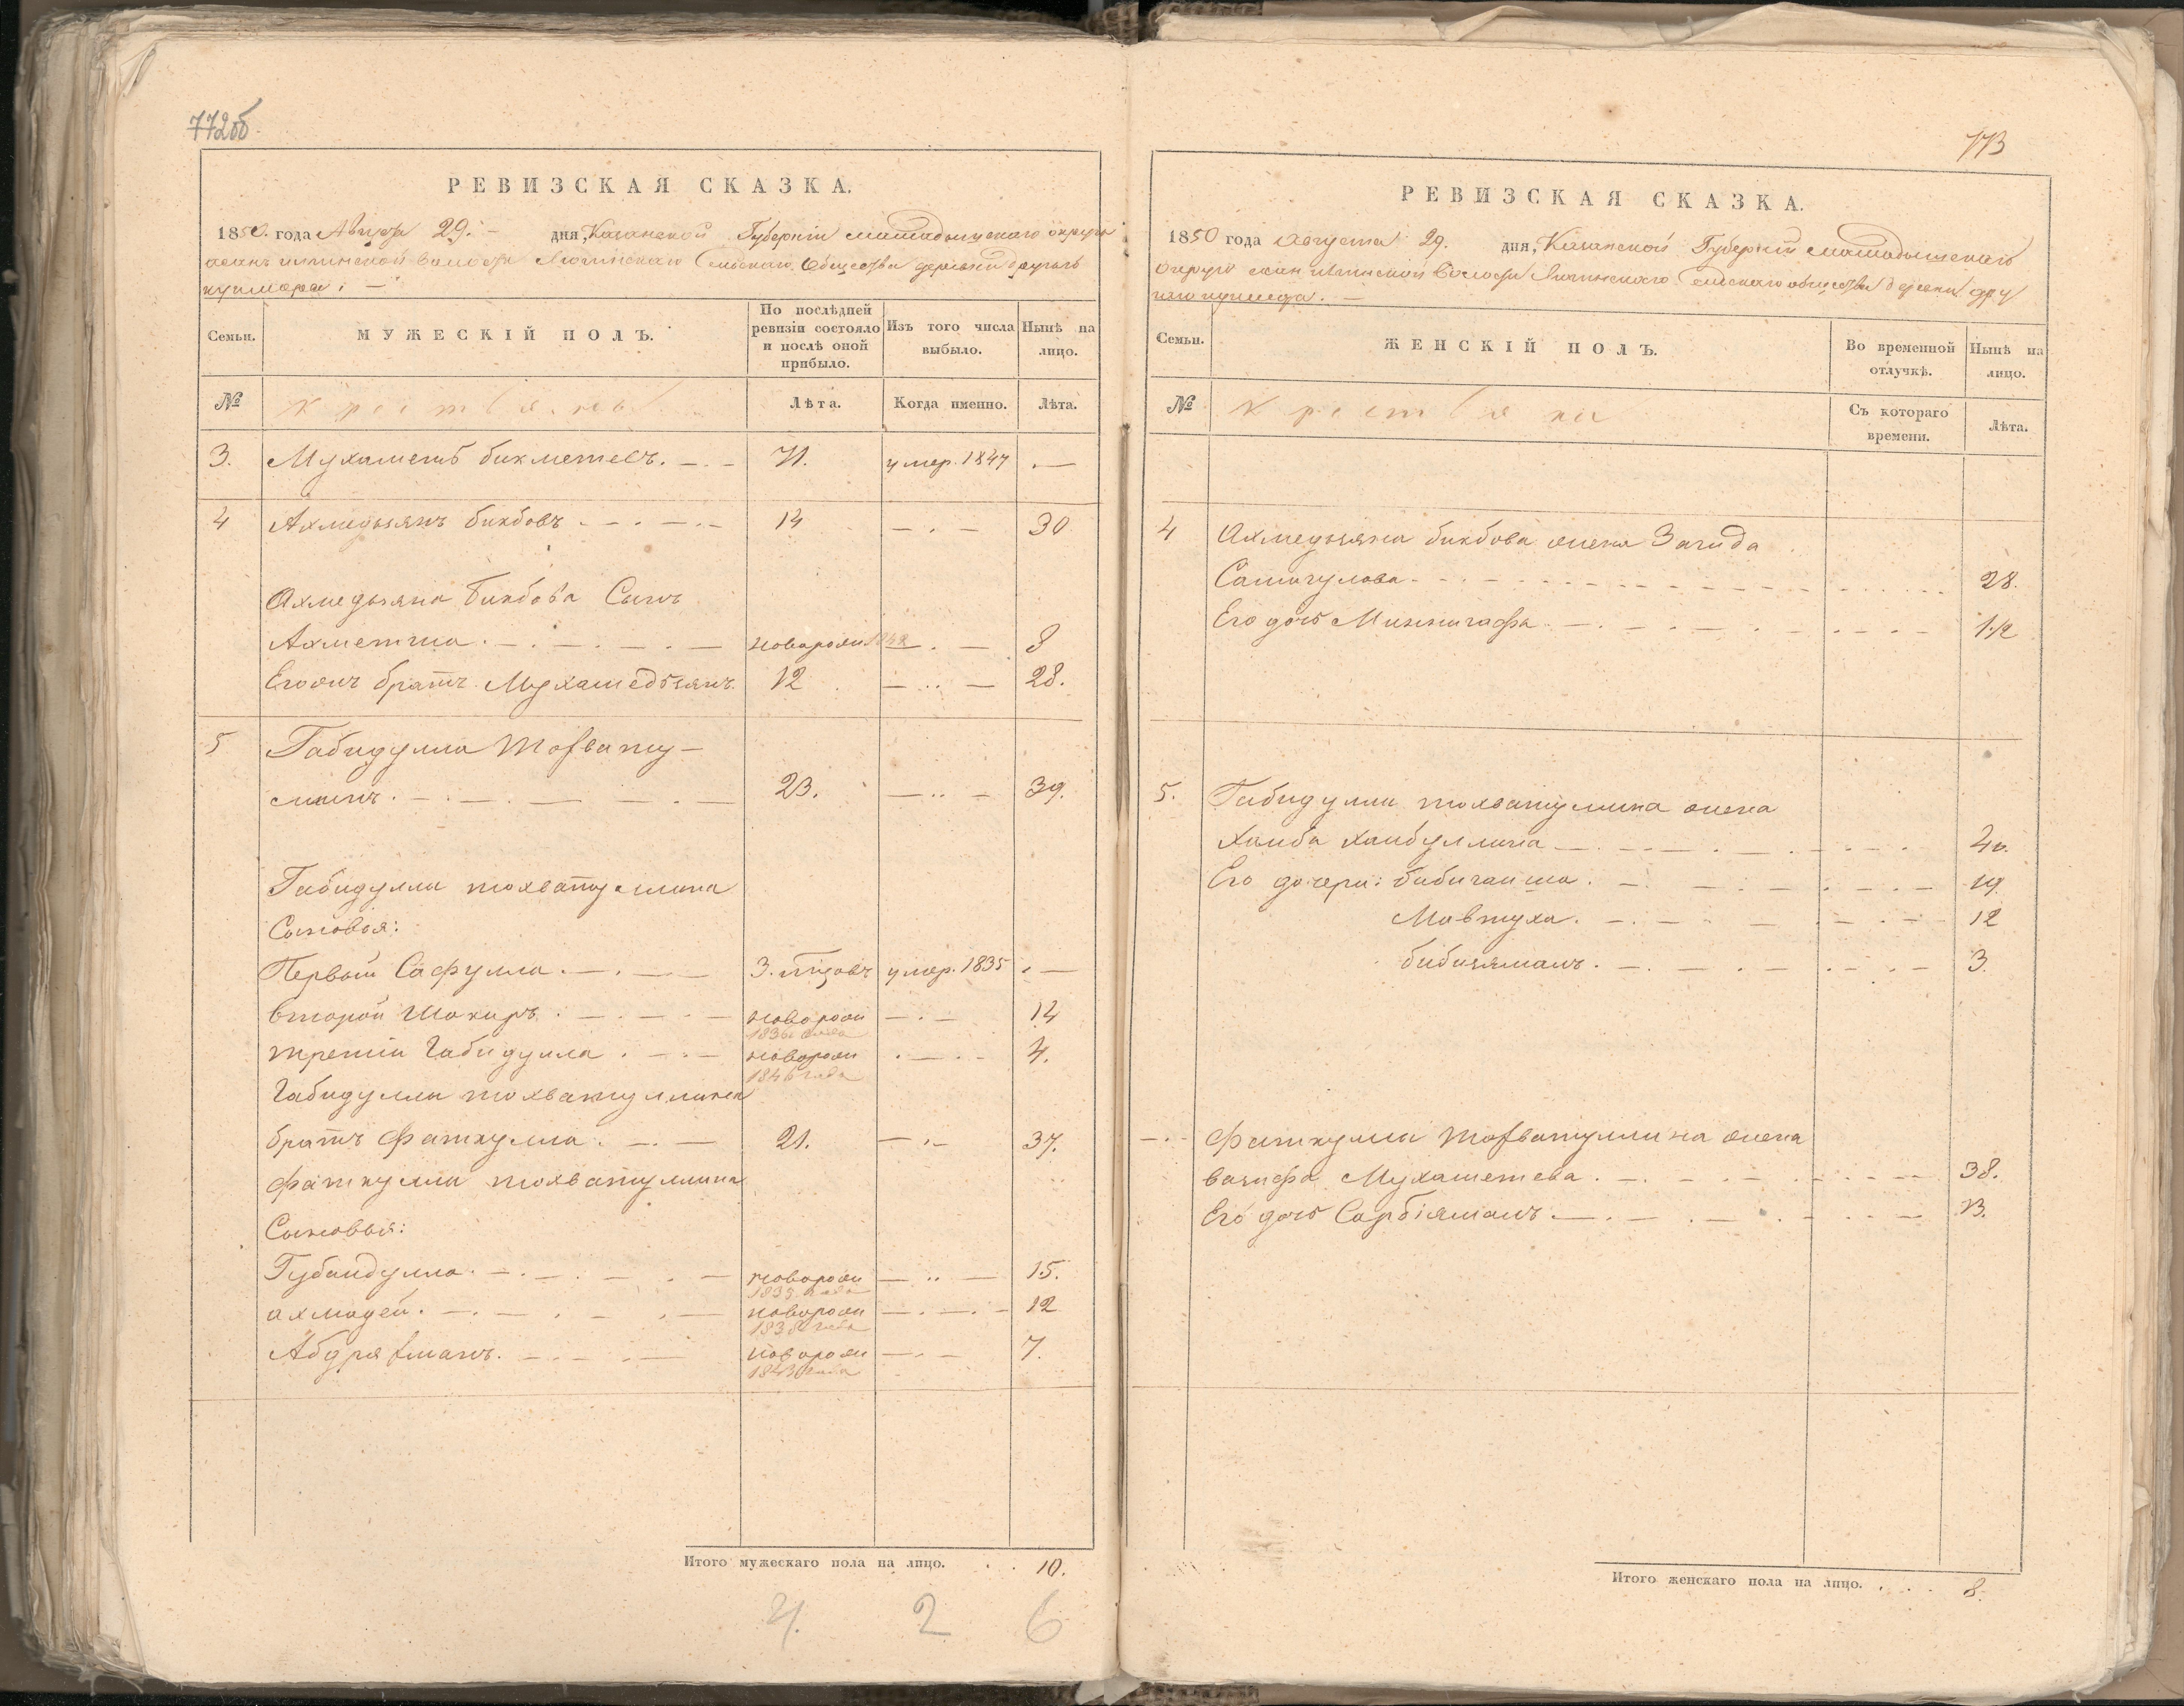 772об.
РЕВИЗСКАЯ СКАЗКА.
1850. года Августа 29. дня, Казанской Губерніи Мамадышскаго округа
волости Сельскаго Общества деревни другаго
Семьи.
МУЖЕСКІЙ ПОЛЪ.
По послѣдней ревизіи состояло и послѣ оной прибыло.
Изъ того числа выбыло.
Нынѣ на лицо.
№
Крестьяне
Лѣта.
Когда именно.
Лѣта.
3. Мухаметъ бикметевъ. 71. умер. 1847 —
4 Ахмедьянъ бикбовъ 14 — 30
Ахмедьяна бикбова Сынъ
Ахметша новорож. 1842 — 8
Егоже братъ Мухамедьянъ. 12 — 28.
5 Габидулла Тохвату-
ллинъ. 23. — 39.
Габидуллы тохватуллина
Сыновья:
Первый Сафулла. 3. годовъ умер. 1835 —
второй Шакиръ. новорож — 14
1836 года
третій Габидулла. новорож — 4.
1846 года
Габидуллы тохватуллина
братъ Фаткулла. 21. — 37.
Фаткуллы тохватуллина
Сыновья:
Губайдулла. новорож — 15.
1835 года
ахмадей. новорож — 12
1838 года
Абдряхманъ. новорож — 7.
1843 года
Итого мужескаго пола на лицо. 10.
4. 2 6
773
РЕВИЗСКАЯ СКАЗКА.
1850 года августа 29. дня, Казанской Губерній Мамадышскаго
Округа волости Сельскаго общества деревни дру
гаго
Семьи.
ЖЕНСКІЙ ПОЛЪ.
Во временной отлучкѣ.
Нынѣ на лицо.
№
Крестьяне
Съ котораго времени.
Лѣта.
4 Ахмедьяна бикбова жена Загида
Самигулова 28.
Его дочь Миннигафа 1½
5. Габидуллы тохватуллина жена
Хамба Хаибуллина 40.
Его дочери: бибигайша. 19.
Мавтуха. 12
бибиямалъ. 3.
Фаткуллы Тохватуллина жена
вазифа Мухаметева. 38.
Его дочь Сарбіямалъ. 13.
Итого женскаго пола на лицо. 8.